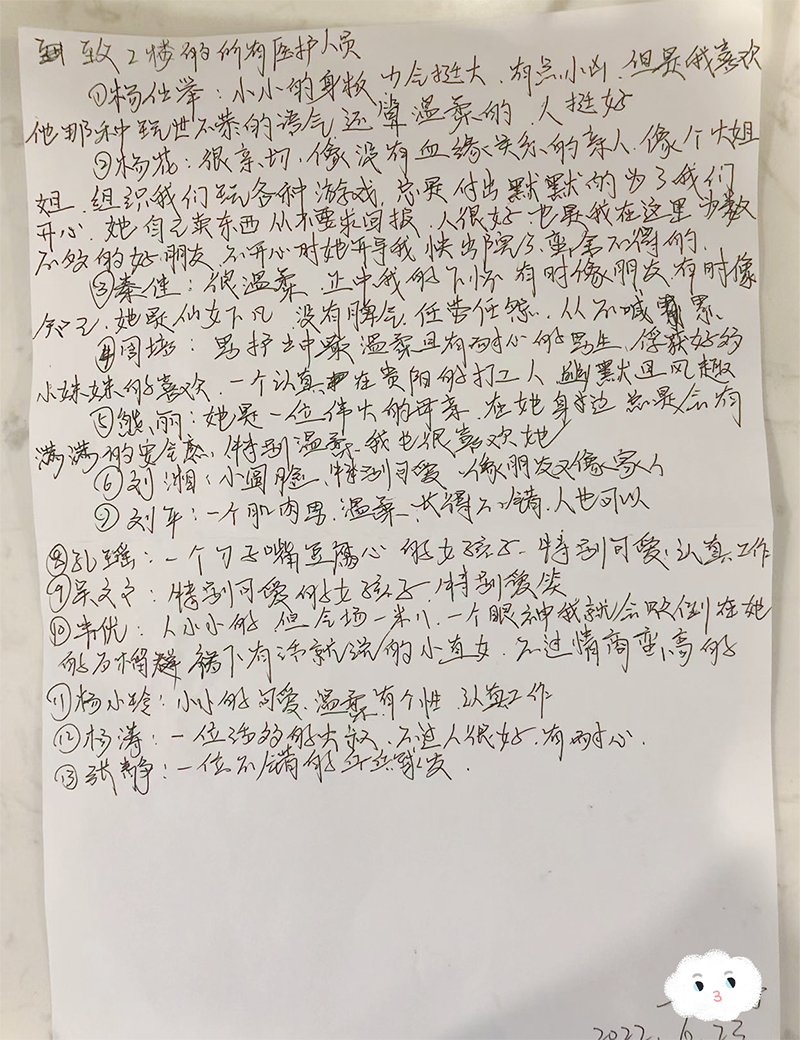 致2楼的所有医护人员
①杨仕举：小小的身板 力气挺大 有点小凶 但是我喜欢
他那种玩世不恭的语气 还蛮温柔的 人挺好
②杨花：很亲切，像没有血缘关系的亲人，像个大姐
姐，组织我们玩各种游戏，总是付出默默的为了我们
开心，她自己卖东西从不要求回报，人很好 也是我在这里少数
不多的好朋友，不开心时她开导我 快出院了 蛮舍不得的，
③秦佳：很温柔 正中我的下怀 有时像朋友 有时像
知己，她是仙女下凡 没有脾气 任劳任怨，从不喊累，
④周培：男护士中最温柔且有耐心的男生，俘获好多
小妹妹的喜欢，一个认真在贵阳的打工人 幽默且风趣
⑤熊丽：她是一位伟大的母亲，在她身边总是会有
满满的安全感，特别温柔，我也很喜欢她
⑥刘湘：小圆脸，特别可爱，像朋友又像家人
⑦刘军：一个肌肉男，温柔，长得不错，人也可以
⑧孔瑶：一个刀子嘴豆腐心的女孩子，特别可爱，认真工作
⑨吴文：特别可爱的女孩子，特别爱笑
⑩韦优：人小小的，但气场一米八，一个眼神我就会败倒在她
的石榴裙下 有话就说的小直女，不过情商蛮高的
⑪杨小玲：小小的可爱，温柔有个性，认真工作
⑫杨涛：一位话多的大叔，不过人很好，有耐心，
⑬张静：一位不错的乒乓球友．
2022.6.23